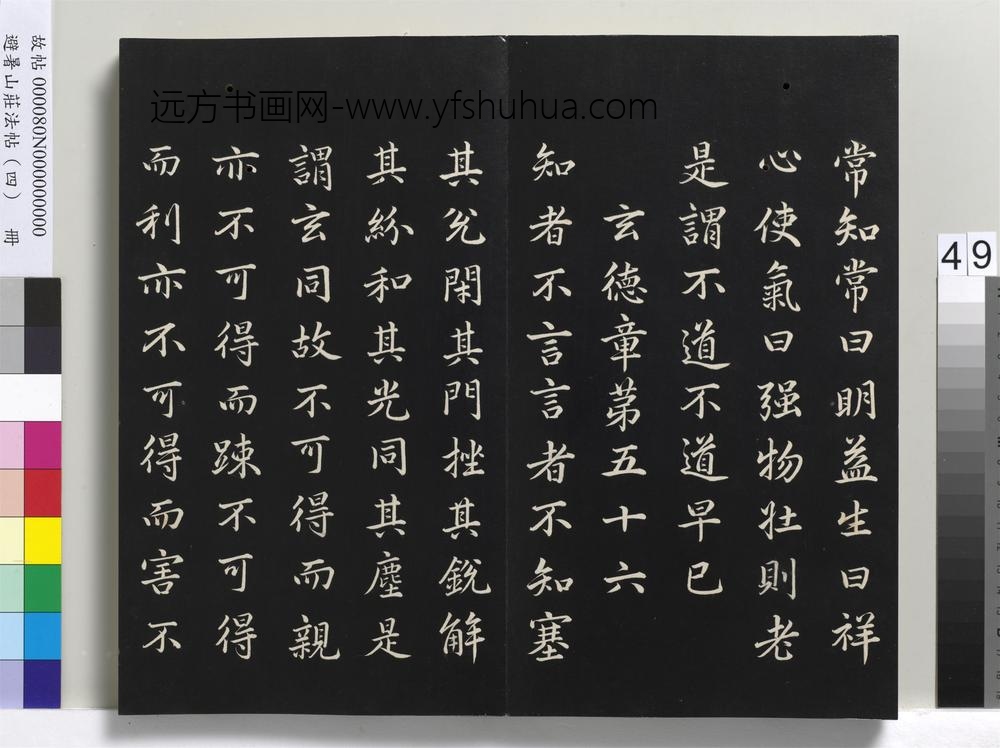 常知常曰明益生曰祥
心使氣曰强物壯則老
是謂不道不道早已
玄德章第五十六
知者不言言者不知塞
其兊閉其門挫其銳解
其紛和其光同其塵是
謂玄同故不可得而親
亦不可得而踈不可得
而利亦不可得而害不
远方书画网-www.yfshuhua.com
故帖 000080N000000000
避暑山莊法帖(四) 冊
49